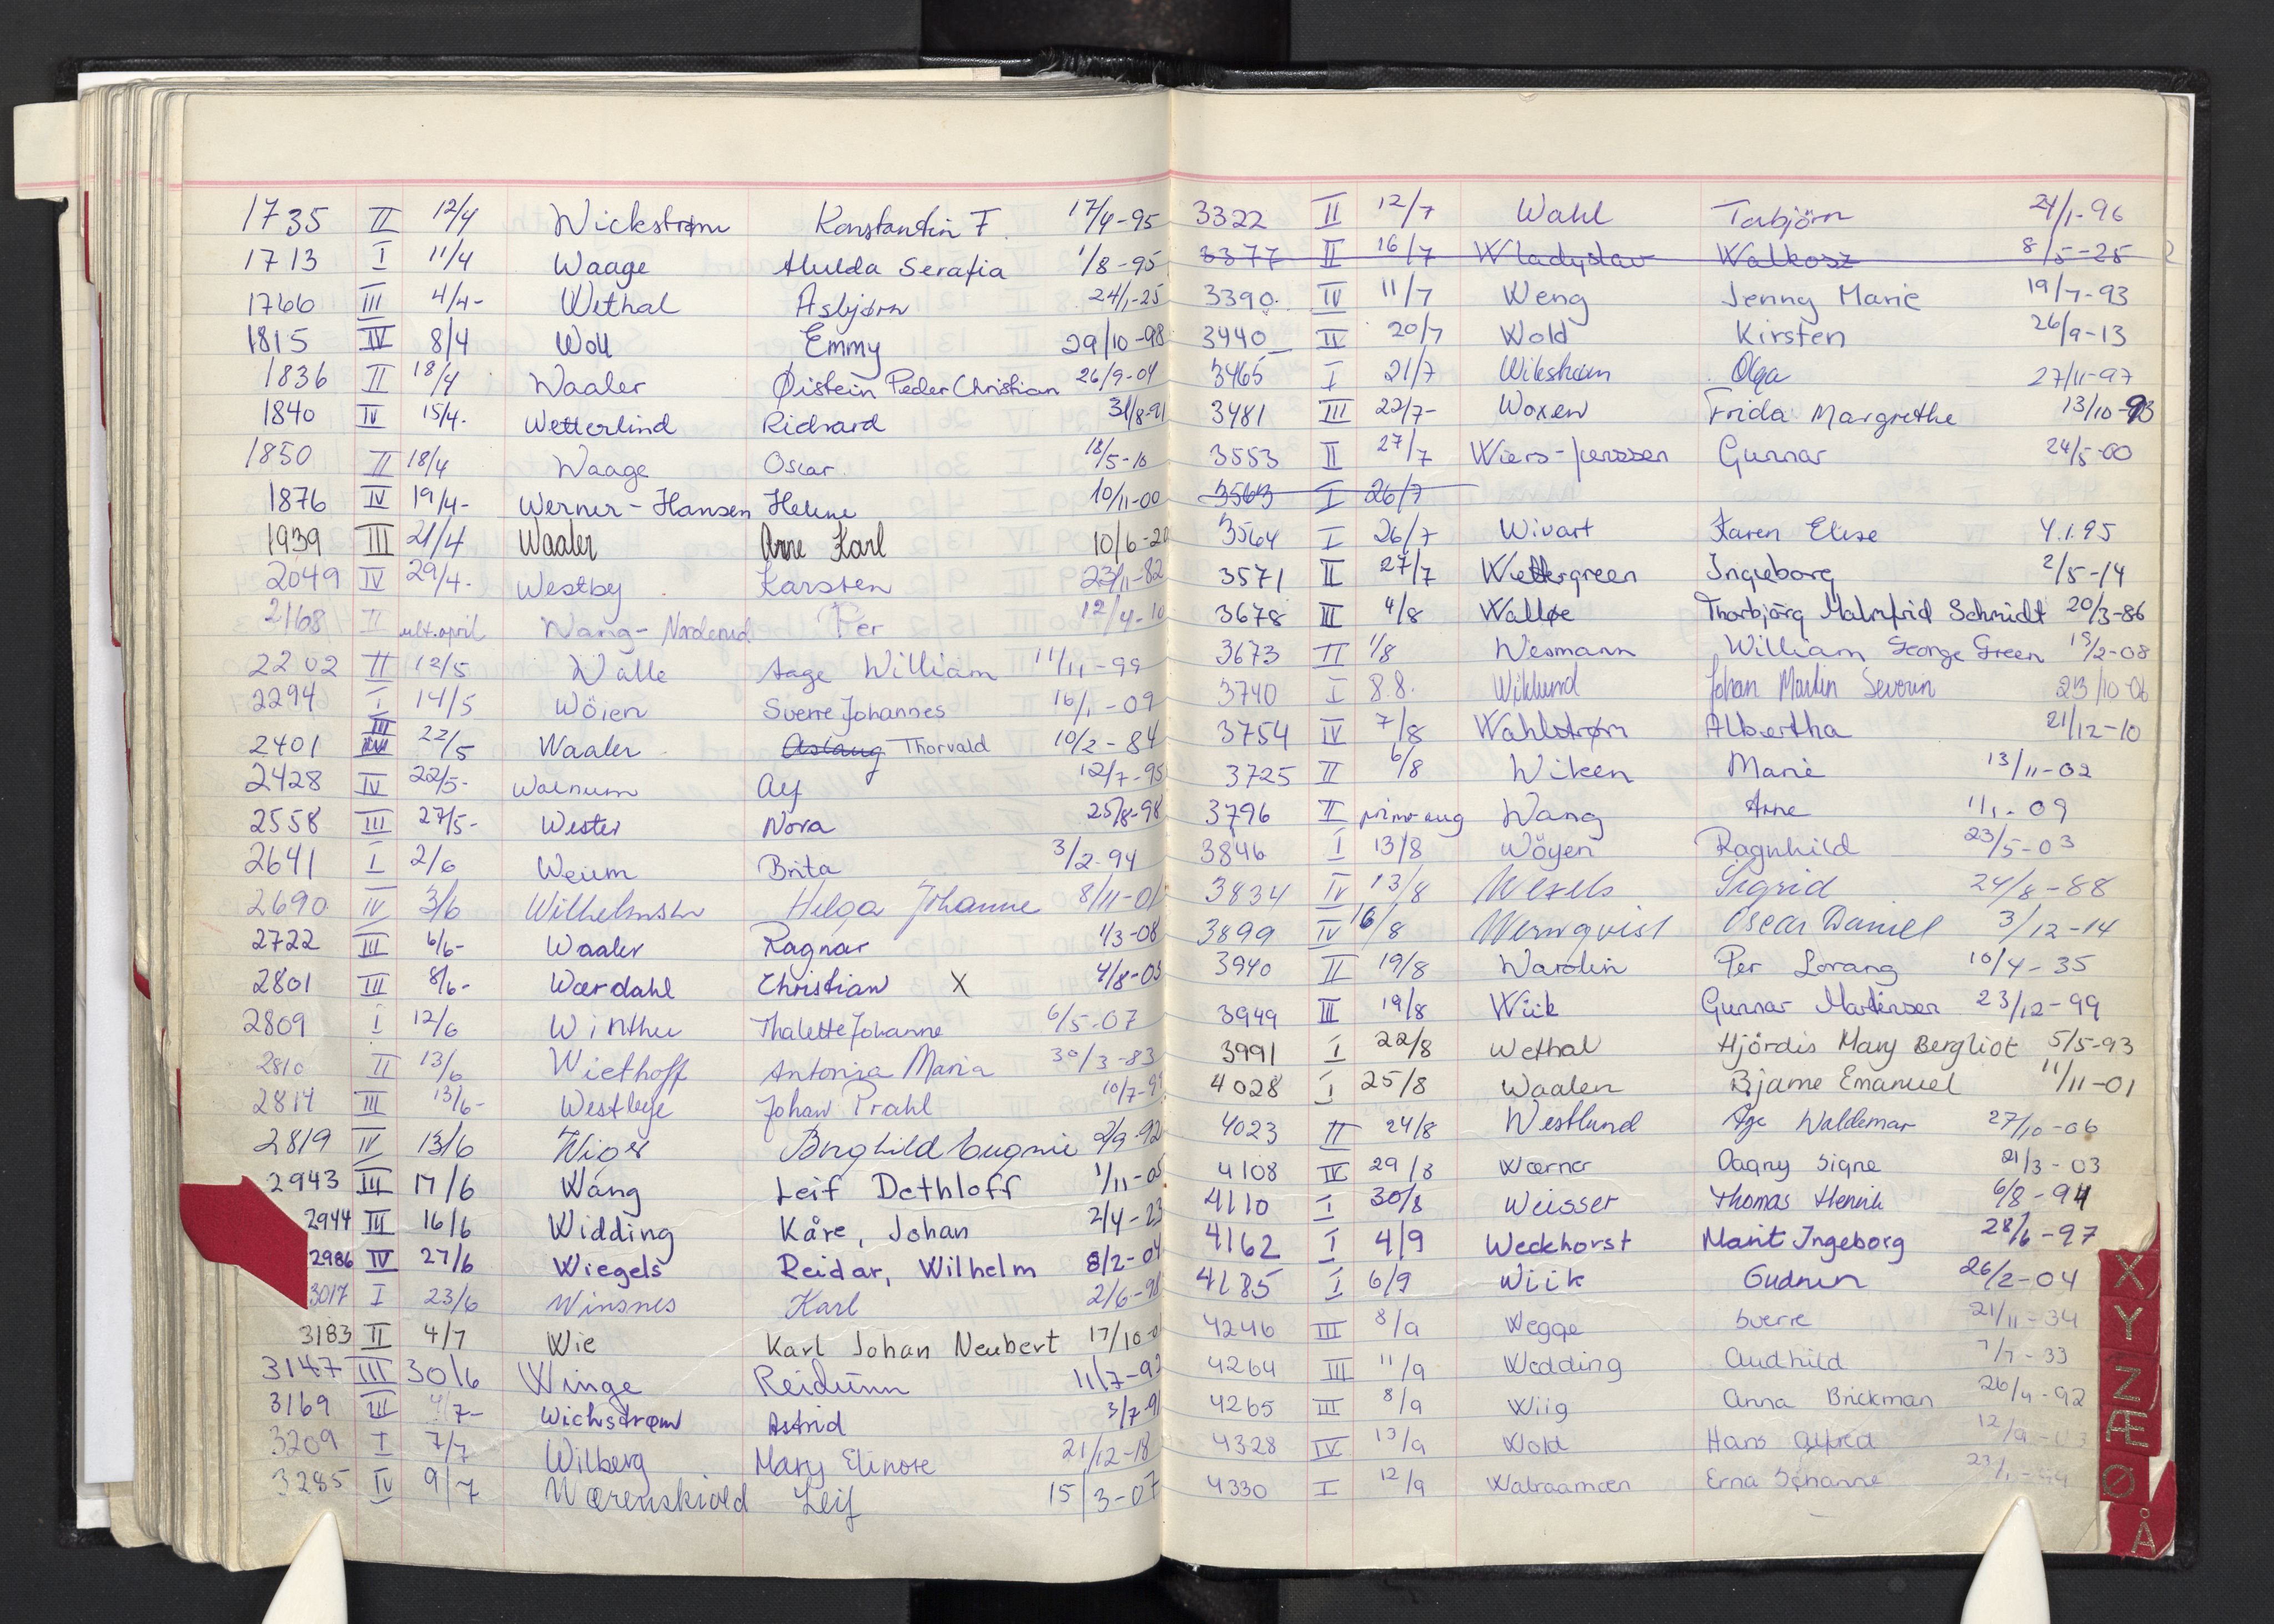 1735 II 12/4 Wickstrøm Konstantin F. 17/4-95
1713 I 11/4 Waage Hulda Serafia 1/8-95
1766 III 4/4- Wethal Asbjørn 24/1-25
1815 IV 8/4 Woll Emmy 29/10-98
1836 II 18/4 Waaler Øistein Peder Christian 26/9-04
1840 IV 15/4. Wetterlind Richard 31/8-91
1850 II 18/4 Waage Oscar. 18/5-10
1876 IV 19/4- Werner-Hansen Helene 10/11-00
1939 III 21/4 Waaler Arne Karl 10/6-20
2049 IV 29/4. Westby Karsten 23/11-82
2168 II ult.april Wang-Norderud Per 12/4-10
2202 II 12/5 Walle Aage William 11/11-99
2294 I 14/5 Wöien Sverre Johannes 16/1-09
2401 III 22/5 Waaler Aslaug Thorvald 10/2-84
2428 IV 22/5- Walnum Alf 12/7-95
2558 III 27/5- Wester Nora 25/8-98
2641 I 2/6 Weium Brita 3/2-94
2690 IV 3/6 Wilhelmsen Helga Johanne 8/11-01
2722 III 6/6- Waaler Ragnar 1/3-08
2801 III 8/6- Wærdahl Christian X 4/8-03
2809 I 12/6 Winther Thalette Johanne 6/5-07
2810 II 13/6 Wiethoff Antonia Maria 30/3-83
2814 III 13/6- Westlye Johan Prahl 10/7-99
2819 IV 13/6 Borghild Eugenie 2/9-92
2943 III 17/6 Wang Leif Dethloff 1/11-05
2944 III 16/6 Widding Kåre, Johan 2/4-23
2986 IV 27/6 Wiegels Reidar, Wilhelm 8/2-04
3017 I 23/6 Winsnes Karl 2/6-98
3183 II 4/7 Wie Karl Johan Neubert 17/10-0
3147 III 30/6 Winge Reidunn 11/7-92
3169 III 4/7- Wichstrøm Astrid 3/7-91
3209 I 7/7 Wilberg Mary Elinore 21/12-18
3285 IV 9/7 Wærenskiold Leif 15/3-07
3322 II 12/7 Wahl Torbjörn 24/1-96
3377 II 16/7 Wladyslav Walkosz 8/5-25
3390. IV 11/7 Weng Jenny Marie 19/7-93
3440 IV 20/7 Wold Kirsten 26/9-13
3465 I 21/7 Wikshøm Olga 27/11-97
3481 III 22/7- Woxen Frida Margrethe 13/10-93
3553 II 27/7 Wiers-Jenssen Gunnar 24/5-00
3563 I 26/7
3564 I 26/7 Wivart Karen Elise 4.1.95
3571 II 27/7 Wettergreen Ingeborg 2/5-14
3678 III 4/8 Walløe Thorbjörg Malmfrid Schmidt 20/3-86
3673 II 1/8 Wesmann William George Green 18/2-08
3740 I 8.8. Wiklund Johan Martin Severin 23/10-06
3754 IV 7/8 Wahlstrøm Albertha 21/12-10
3725 II 6/8 Wiken Marie 13/11-02
3796 II primo aug Wang Arne 11/1-09
3846 I 13/8 Wöyen Ragnhild 23/5-03
3834 IV 13/8 Wexels Sigrid 24/8-88
3899 IV 16/8 Wernqvist Oscar Daniel 3/12-14
3940 II 19/8 Warolin Per Lorang 10/4-35
3949 III 19/8 Wiik Gunnar Martinsen 23/12-99
3991 I 22/8 Wethal Hjördis Mary Bergliot 5/5-93
4028 I 25/8 Waalen Bjarne Emanuel 11/11-01
4023 II 24/8 Westlund Åge Waldemar 27/10-06
4108 IV 29/8 Wærner Dagny Signe 21/3-03
4110 I 30/8 Weisser Thomas Henrik 6/8-94
4162 I 4/9 Weckhorst Marit Ingeborg 28/6-97
4185 I 6/9 Wiik Gudrun 26/2-04
4246 III 8/9 Wegge Sverre 21/11-34
4264 III 11/9 Wedding Audhild 7/7-33
4265 III 8/9 Wiig Anna Brickman 26/4-92
4328 IV 13/9 Wold Hans Alfred 12/9-03
4330 I 12/9 Walraamoen Erna Johanne 23/1-99
X
Y
Z
Æ
Ø
Å